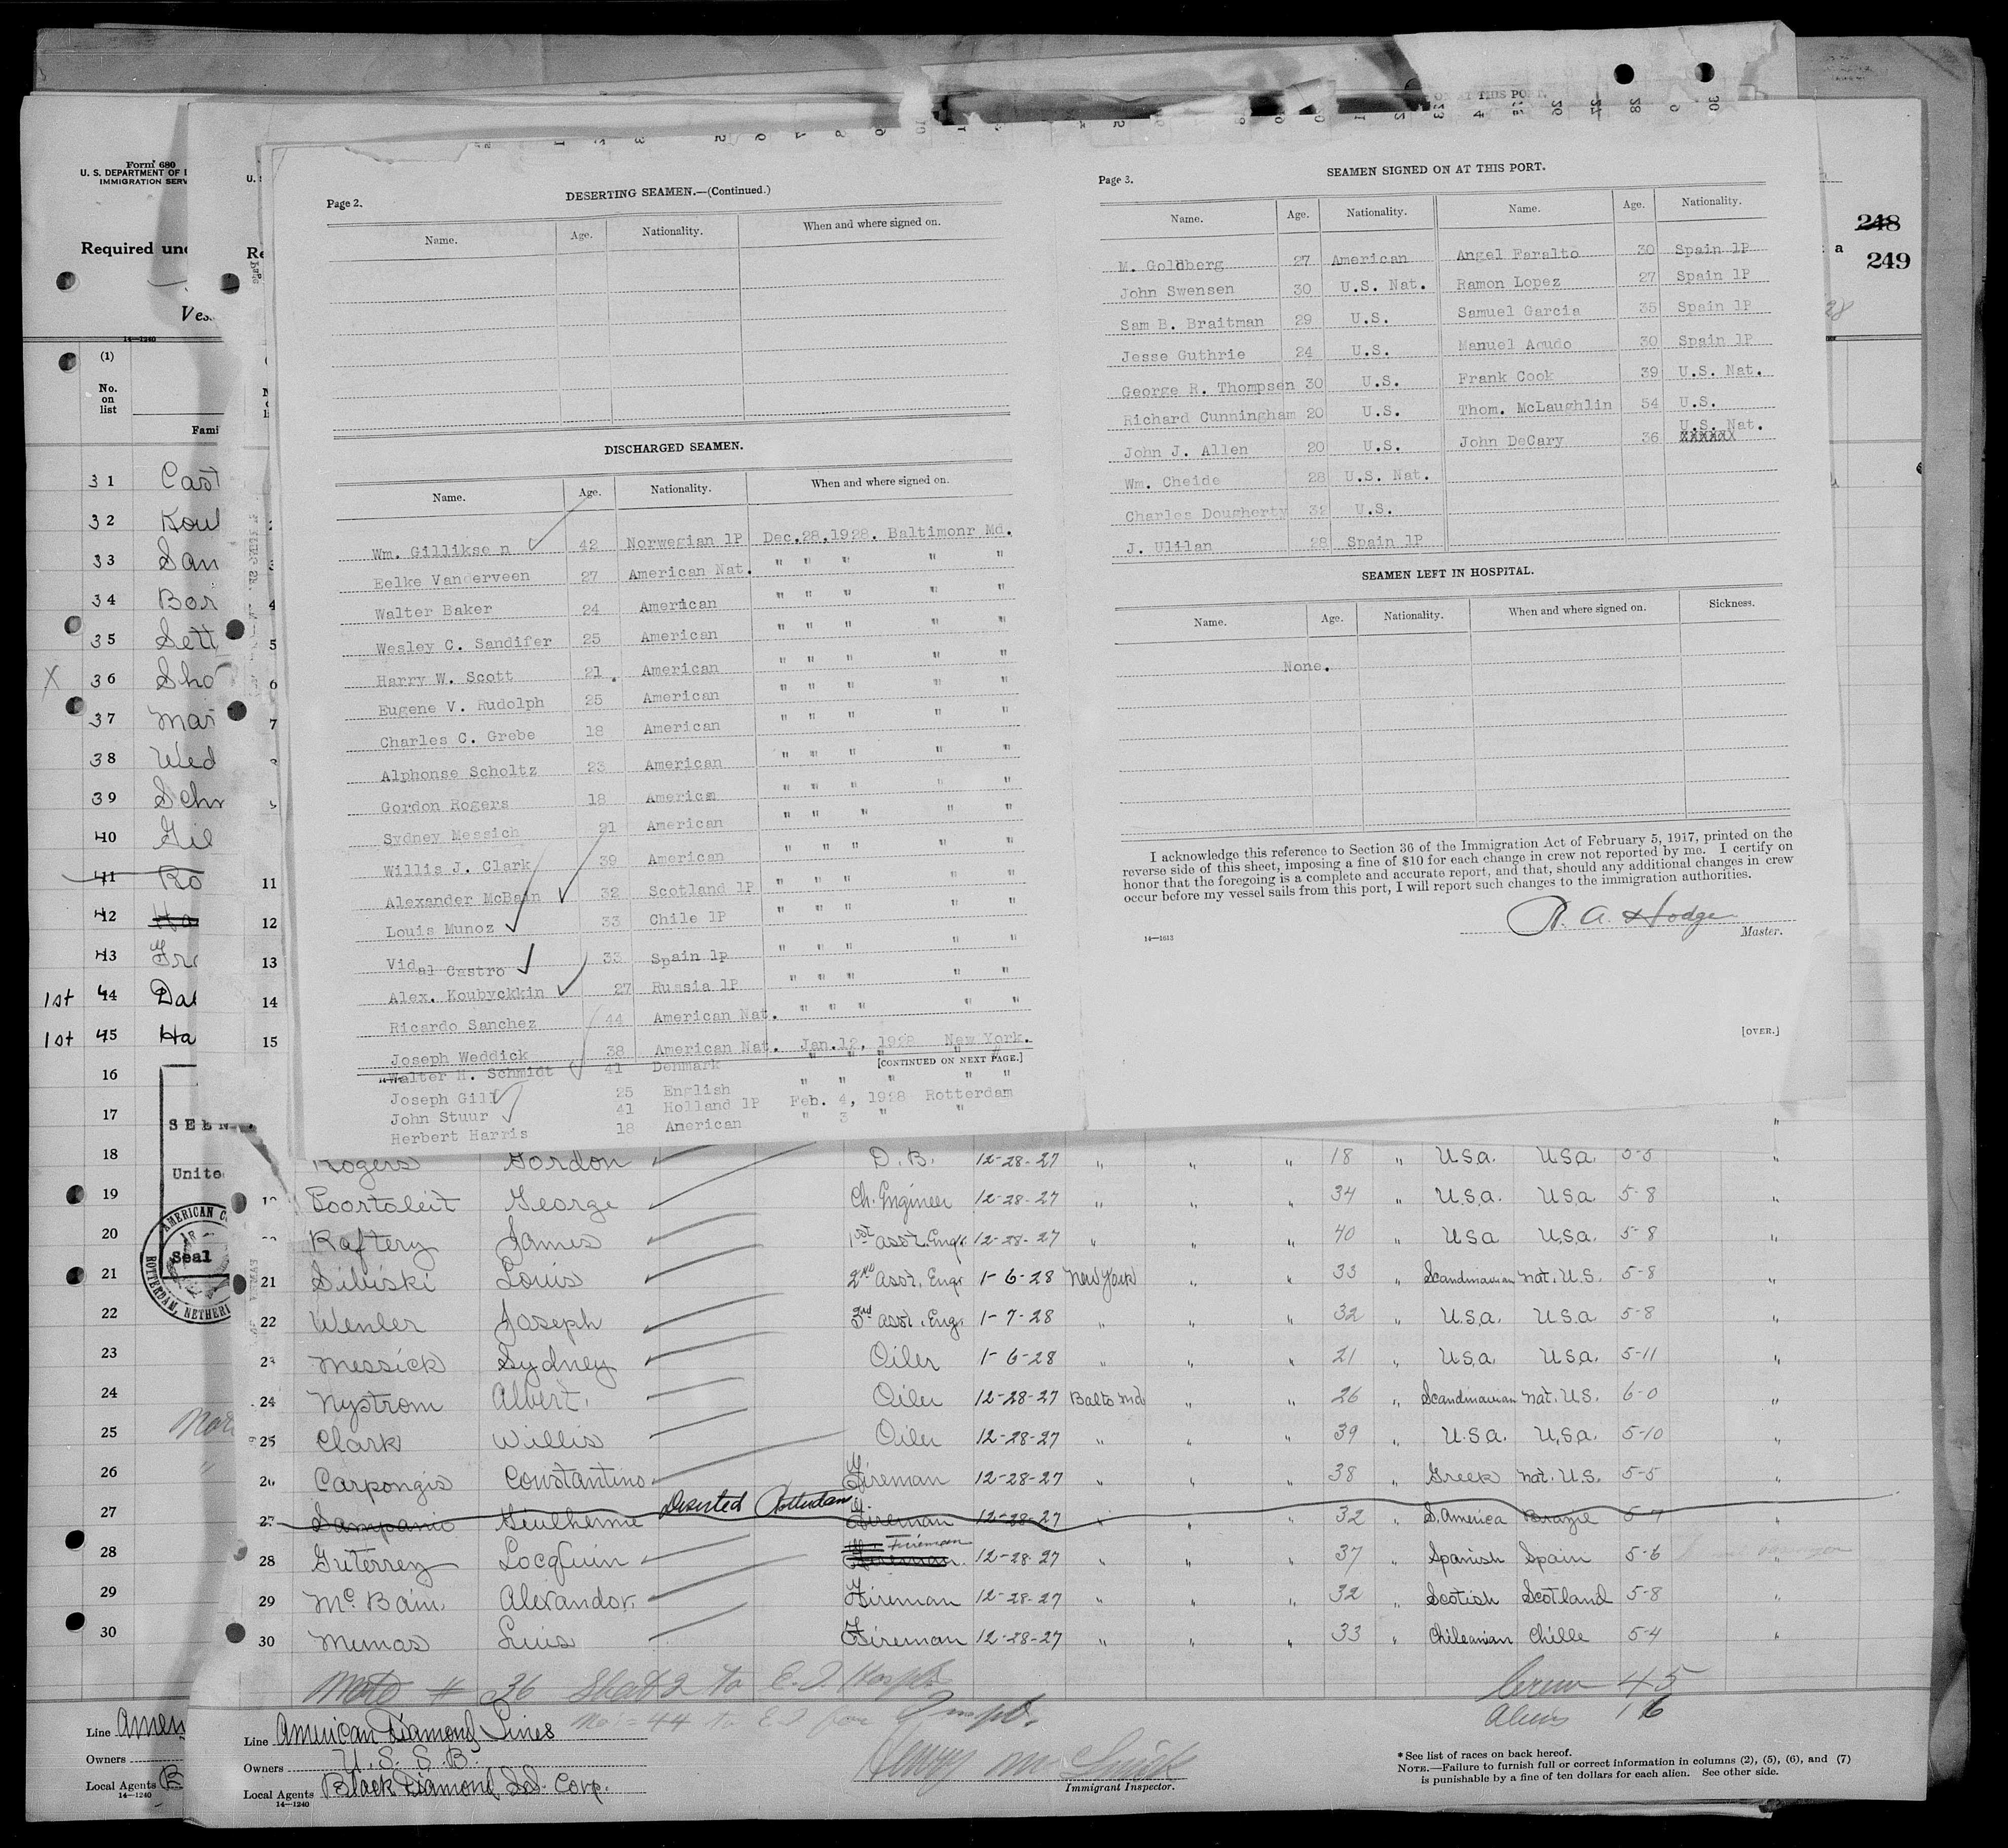 Form 680
U. S. DEPARTMENT OF
IMMIGRATION SERV
Required und
Ves
14—1240
(1)
No.
on
list
Fami
248
249
Page 2.
DESERTING SEAMEN.—(Continued.)
Name. Age. Nationality. When and where signed on.
DISCHARGED SEAMEN.
Name. Age. Nationality. When and where signed on.
Wm. Gillikse n 42 Norwegian 1P Dec.28.1928. Baltimonr Md.
Eelke Vanderveen 27 American Nat. " " " " "
Walter Baker 24 American " " " " "
Wesley C. Sandifer 25 American " " " " "
Harry W. Scott 21. American " " " " "
Eugene V. Rudolph 25 American " " " " "
Charles C. Grebe 18 American " " " " "
Alphonse Scholtz 23 American " " " " "
Gordon Rogers 18 American " " " " "
Sydney Messich 21 American " " " " "
Willis J. Clark 39 American " " " " "
Alexander McBain 32 Scotland 1P " " " " "
Louis Munoz 33 Chile 1P " " " " "
Vidal Castro 33 Spain 1p " " " " "
Alex. Koubyckkin 27 Russia 1P " " " " "
Ricardo Sanchez 44 American Nat. " " " " "
Joseph Weddick 38 American Nat. Jan.12, 1928 New York.
[CONTINUED ON NEXT PAGE.]
Walter H. Schmidt 41 Denmark " " " " "
Joseph Gill 25 English " " " " "
John Stuur 41 Holland 1P Feb. 4, 1928 Rotterdam
Herbert Harris 18 American " 3 " "
Page 3.
SEAMEN SIGNED ON AT THIS PORT.
Name. Age. Nationality. Name. Age. Nationality.
M. Goldberg 27 American Angel Faralto 30 Spain 1P
John Swensen 30 U.S. Nat. Ramon Lopez 27 Spain 1P
Sam B. Braitman 29 U.S. Samuel Garcia 35 Spain 1P
Jesse Guthrie 24 U.S. Manuel Agudo 30 Spain 1P
George R. Thompsen 30 U.S. Frank Cook 39 U.S. Nat.
Richard Cunningham 20 U.S. Thom. McLaughlin 54 U.S.
John J. Allen 20 U.S. John DeCary 36 U.S. Nat.
Wm. Cheide 28 U.S. Nat.
Charles Dougherty 32 U.S.
J. Ulilan 28 Spain 1P
SEAMEN LEFT IN HOSPITAL.
Name. Age. Nationality. When and where signed on. Sickness.
None.
I acknowledge this reference to Section 36 of the Immigration Act of February 5, 1917, printed on the
reverse side of this sheet, imposing a fine of $10 for each change in crew not reported by me. I certify on
honor that the foregoing is a complete and accurate report, and that, should any additional changes in crew
occur before my vessel sails from this port, I will report such changes to the immigration authorities.
R. A. Hodge
Master.
14—1613
[OVER.]
31 Cast
32 Koul
33 San
34 Bor
35 Sett
X 36 Sho
37 Mar
38 Wed
39 Schr
40 Gil
41 Ro
42 Ha
43 Fr
1st 44 Dal
1st 45 Ha
16
17
18
19
20
21
22
23
24
25
26
27
28
29
30
11
12
13
14
15
Unite
AMERICAN C
Seal
ROTTERDAM, NETHER
Rogers Gordon D. B. 12-28-27 " " " 18 " U.S.A. U.S.A. 5-5 "
Poortaleit George Ch. Engineer 12-28-27 " " " 34 " U.S.A. U.S.A. 5-8 "
Raftery James 1st Asst. Engr 12-28-27 " " " 40 " U.S.A U.S.A. 5-8 "
21 Sibiski Louis 2nd Asst. Engr 1-6-28 New York " " 33 " Scandinavian Nat. U.S. 5-8 "
22 Wenler Joseph 3rd Asst. Eng. 1-7-28 " " " 32 " U.S.A. U.S.A 5-8 "
23 Messick Sydney Oiler 1-6-28 " " " 21 " U.S.A. U.S.A. 5-11 "
24 Nystrom Albert. Oiler 12-28-27 Balto Md " " 26 " Scandinavian Nat. U.S. 6-0 "
25 Clark Willis Oiler 12-28-27 " " " 39 " U.S.A. U.S.A. 5-10 "
26 Carpongis Constantino Fireman 12-28-27 " " " 38 " Greek Nat. U.S. 5-5 "
Deserted Rotterdam
27 Sampanio Giulherme Fireman 12-28-27 " " " 32 " S. America Brazil 5-7 "
28 Guterrez Locquin Fireman 12-28-27 " " " 37 " Spanish Spain 5-6 "
29 McBain. Alexandor. Fireman 12-28-27 " " " 32 " Scotish Scotland 5-8 "
30 Munas Luis Fireman 12-28-27 " " " 33 " Chileanian Chille 5-4 "
Note # 36 Sheet 2 to E. I. Hospl
No. = 44 to E.I. for Inspt.
Crew 45
Aliens 16
Line Amer
Owners
Local Agents B
14—1240
Line American Diamond Lines
Owners U. S. S. B.
Local Agents Black Diamond S.S. Corp.
14—1240
Immigrant Inspector.
* See list of races on back hereof.
NOTE.—Failure to furnish full or correct information in columns (2), (5), (6), and (7)
is punishable by a fine of ten dollars for each alien. See other side.